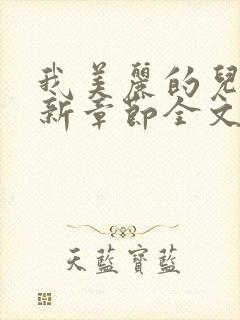 我美麗的兒
新章節全文
天藍寶藍